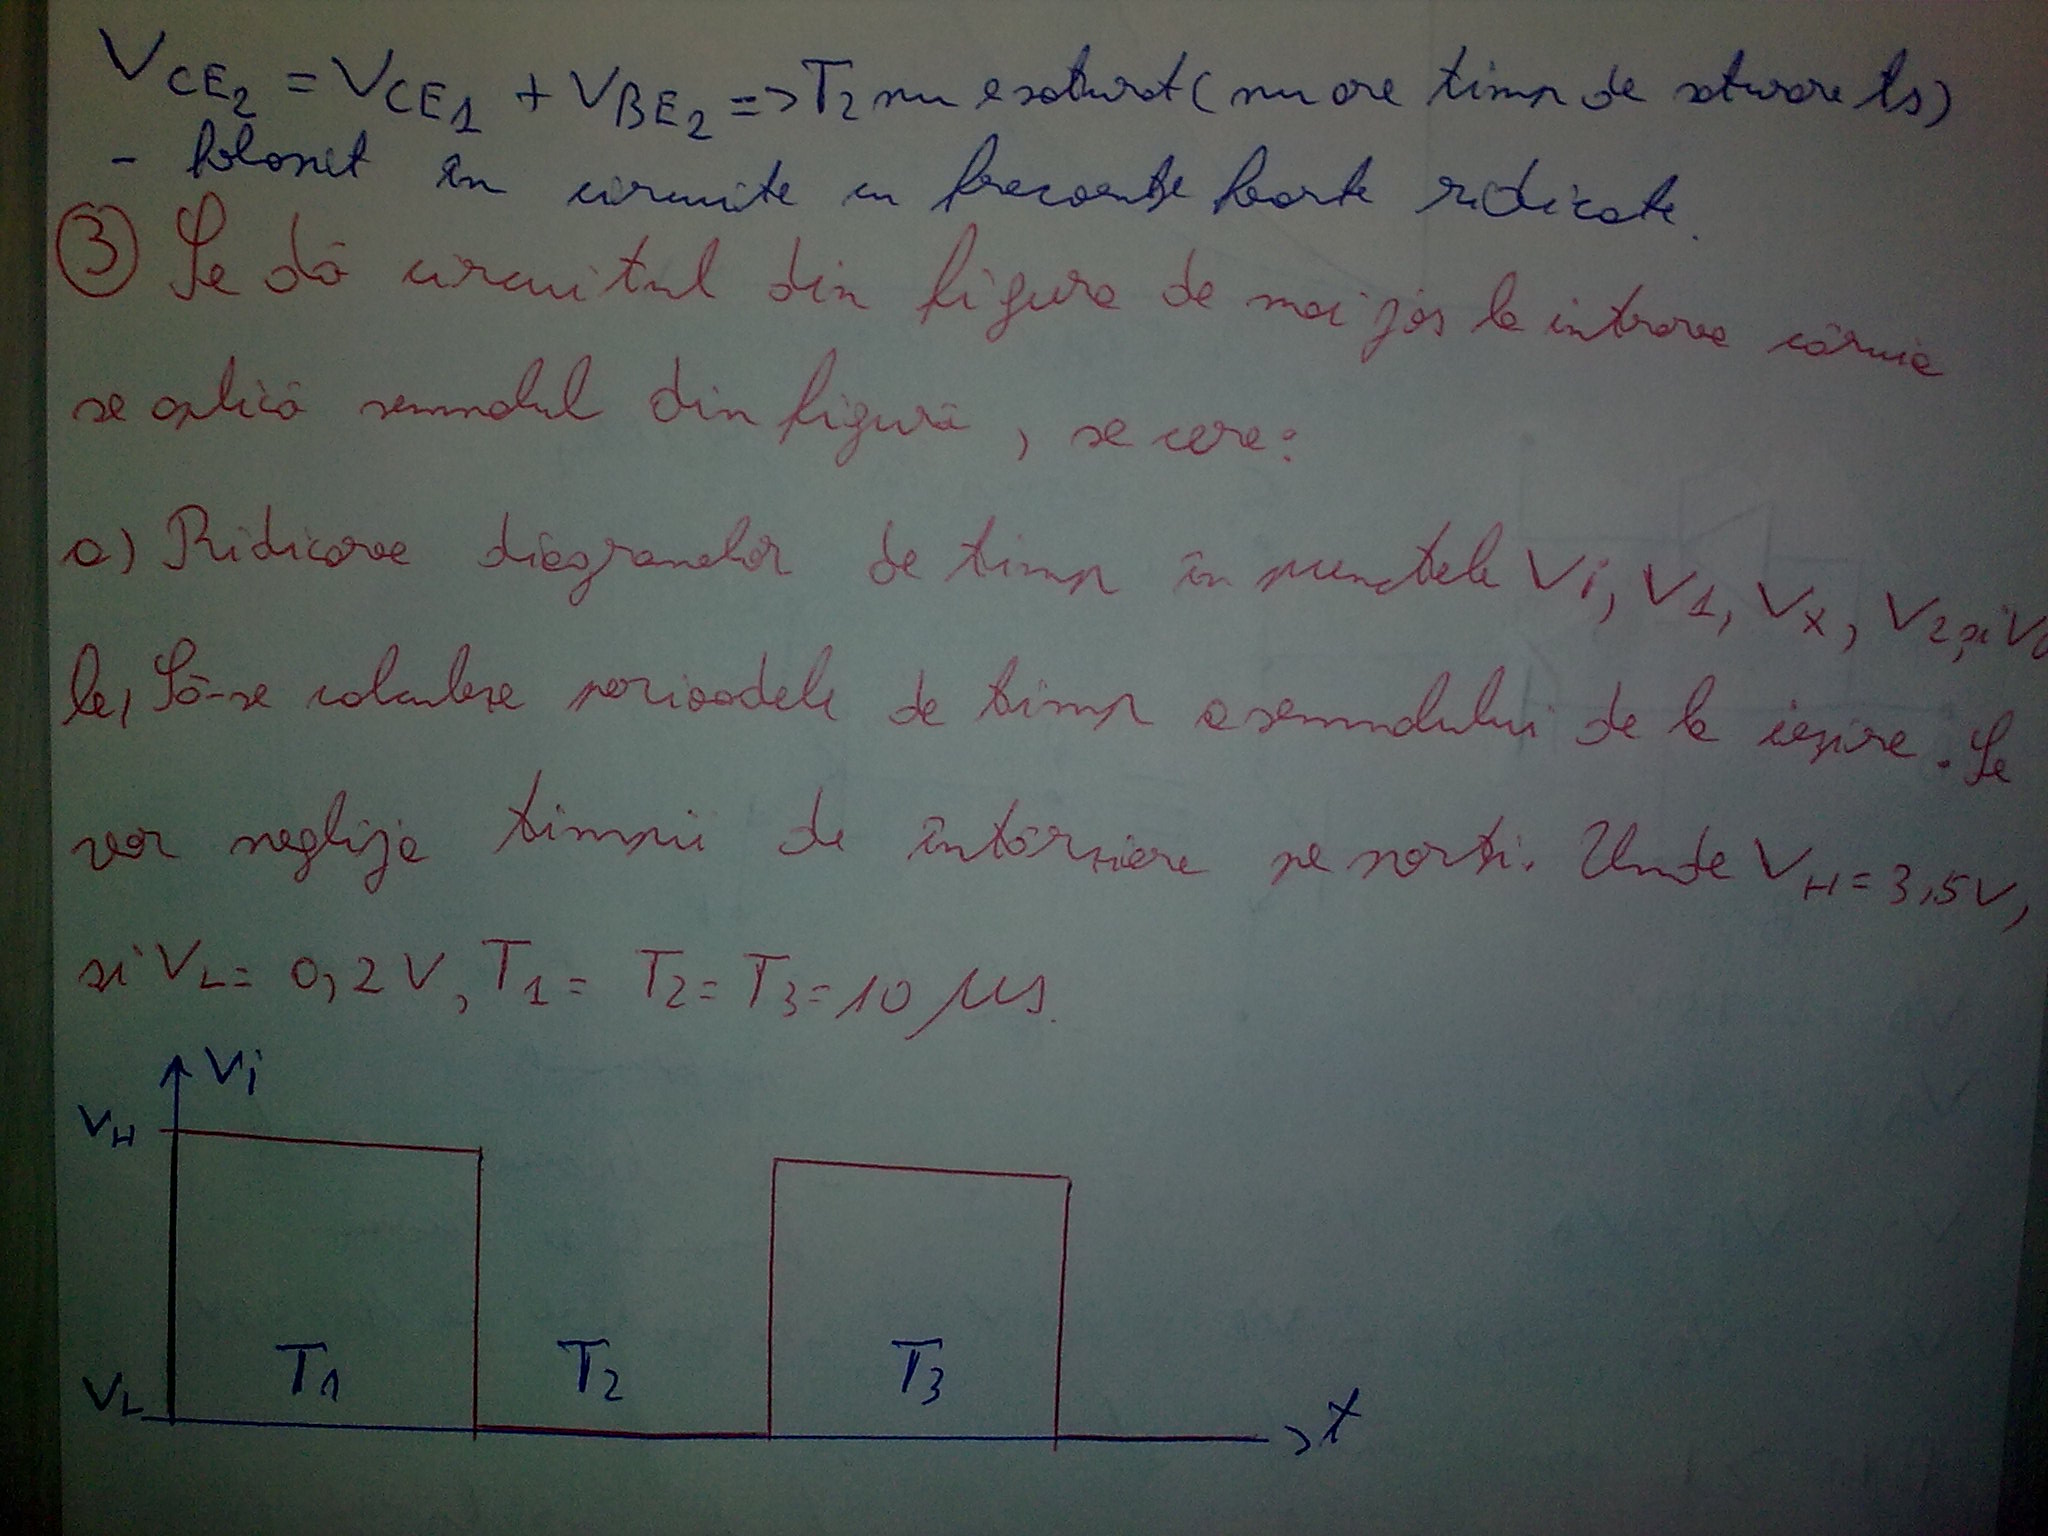 VCE2 = VCE1 + VBE2 => T2 nu e saturat (nu are timp de saturare ts)
- folosit în circuite cu frecvențe foarte ridicate.
③ Se dă circuitul din figura de mai jos la intrarea căruia
se aplică semnalul din figură, se cere:
a) Ridicarea diagramelor de timp în punctele Vi, V1, Vx, V2, si V0
b, Să-se calculeze perioadele de timp a semnalului de la ieșire. Se
vor neglija timpii de întârziere pe porți. Unde VH = 3,5V,
si VL = 0,2V, T1 = T2 = T3 = 10 µs.
Vi
VH
T1 T2 T3
VL
t